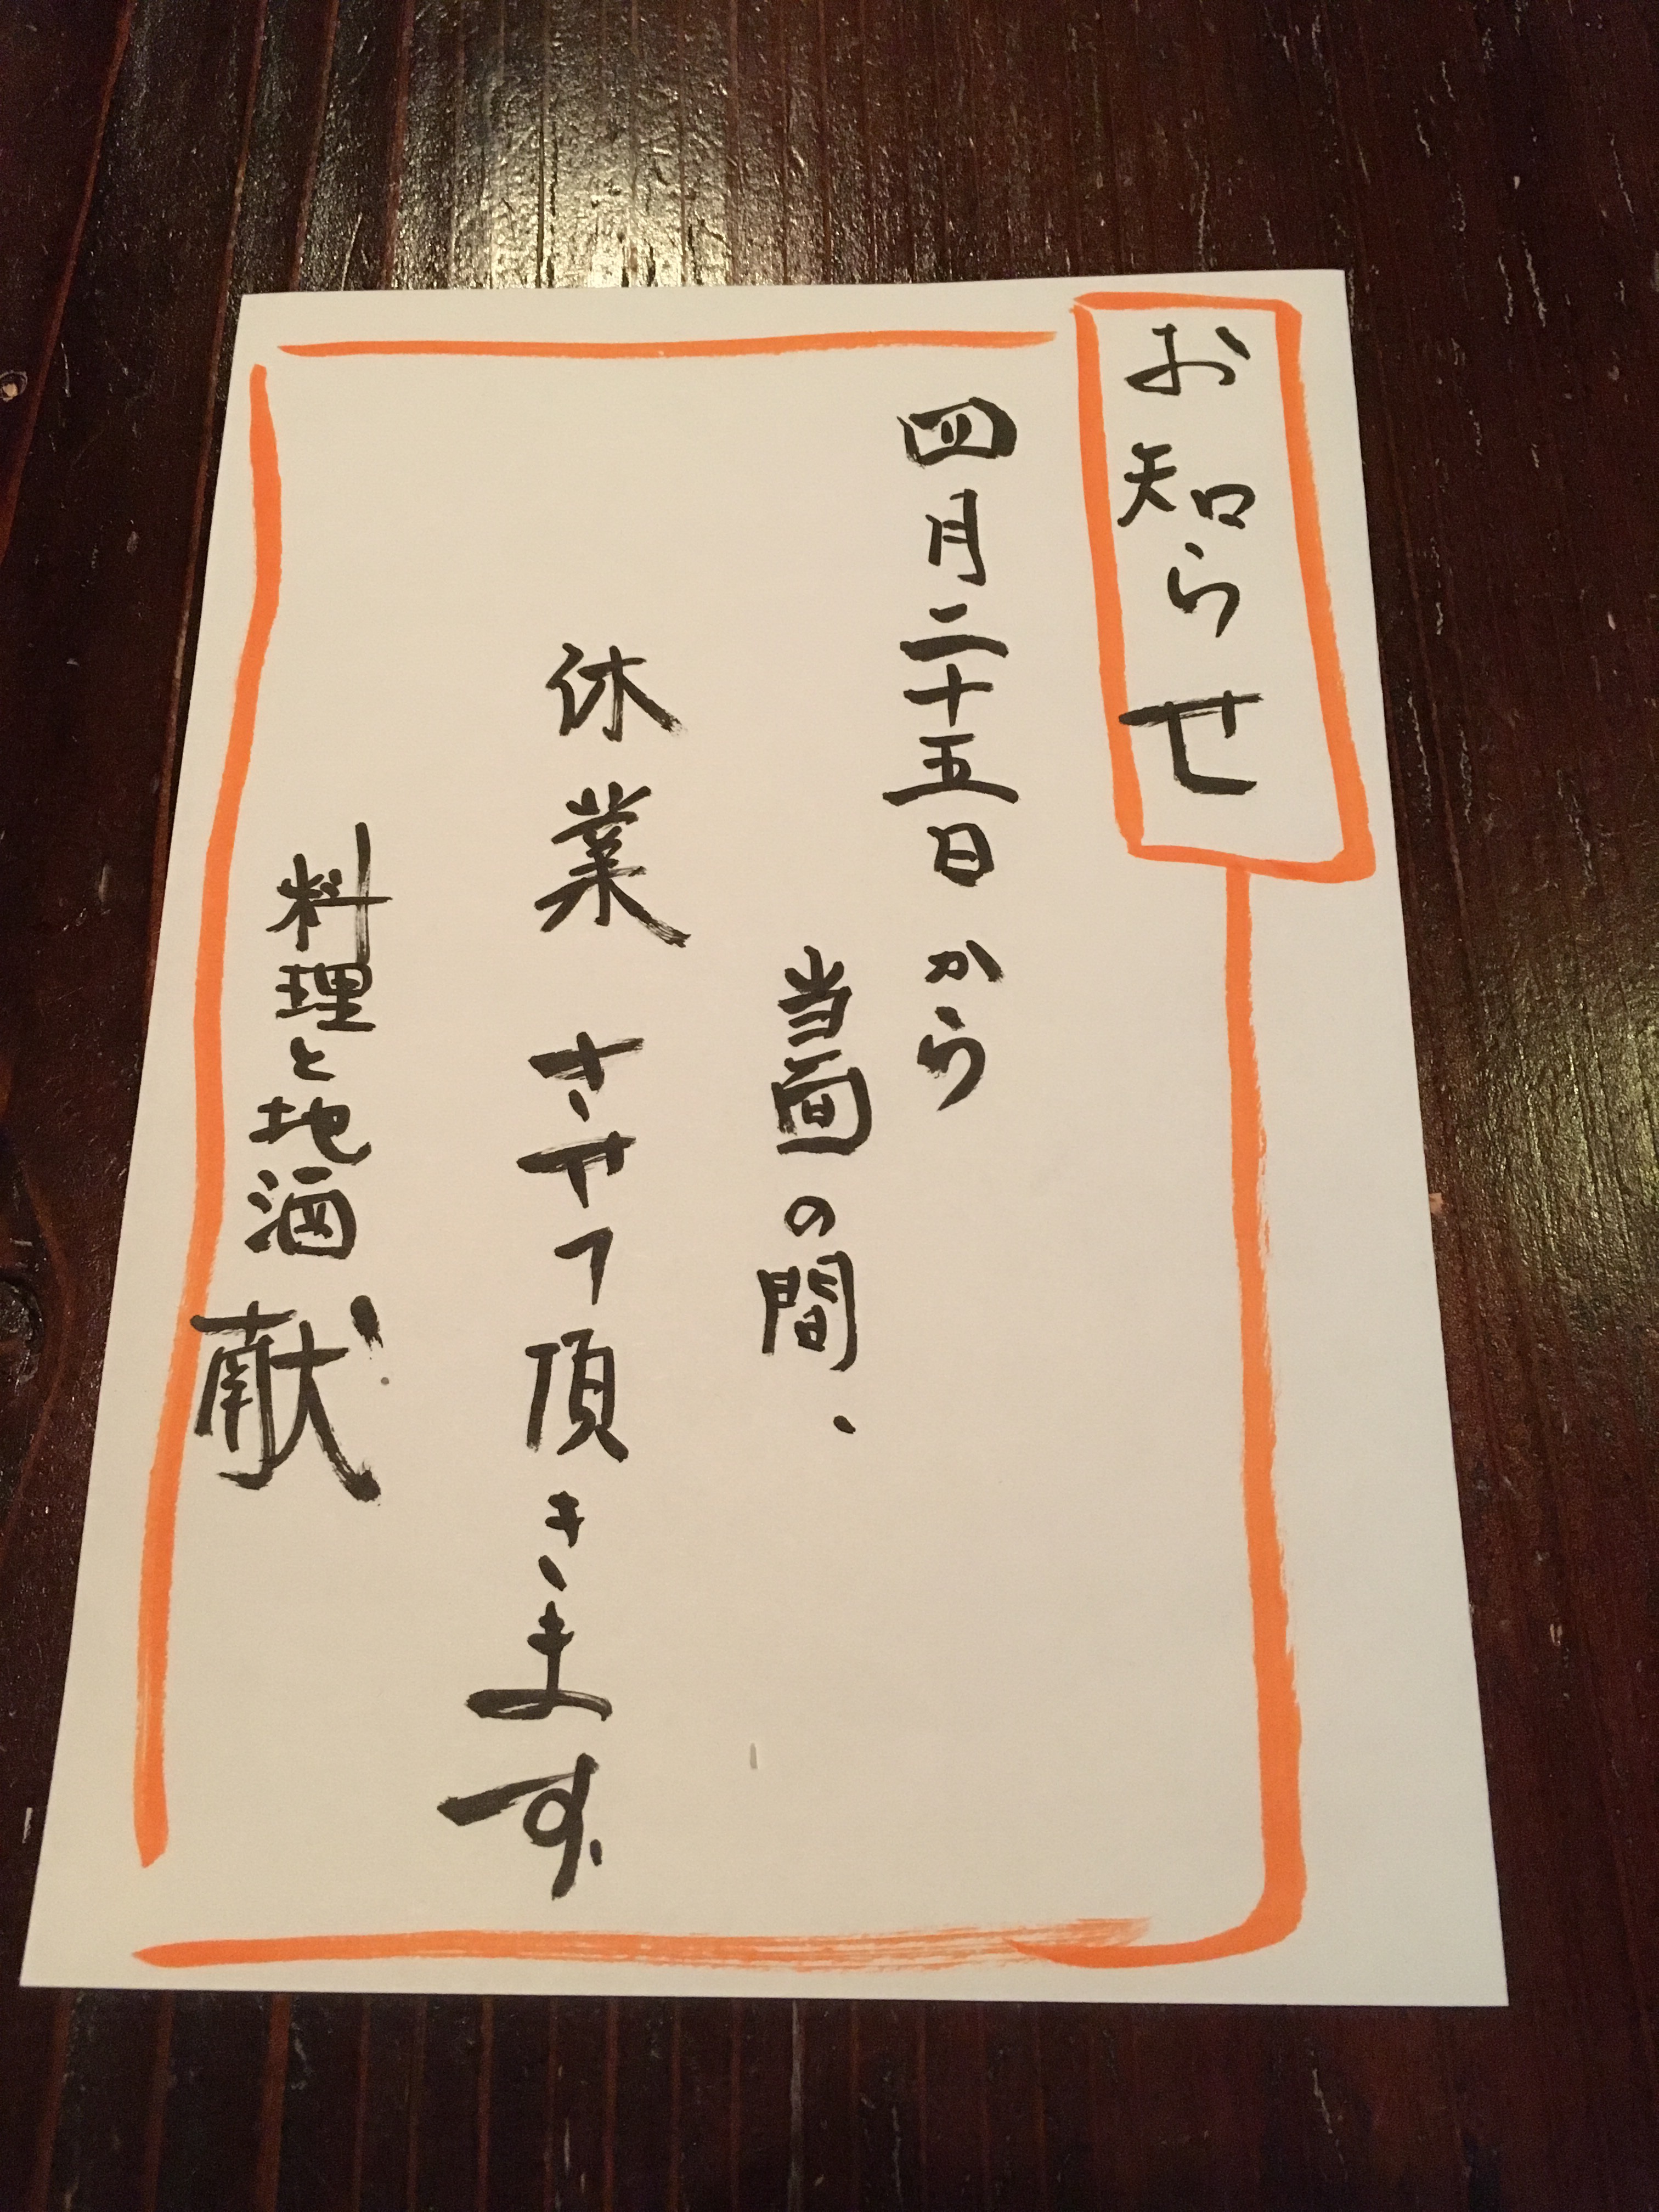 お知らせ
四月二十五日から
当面の間、
休業させて頂きます
料理と地酒 献